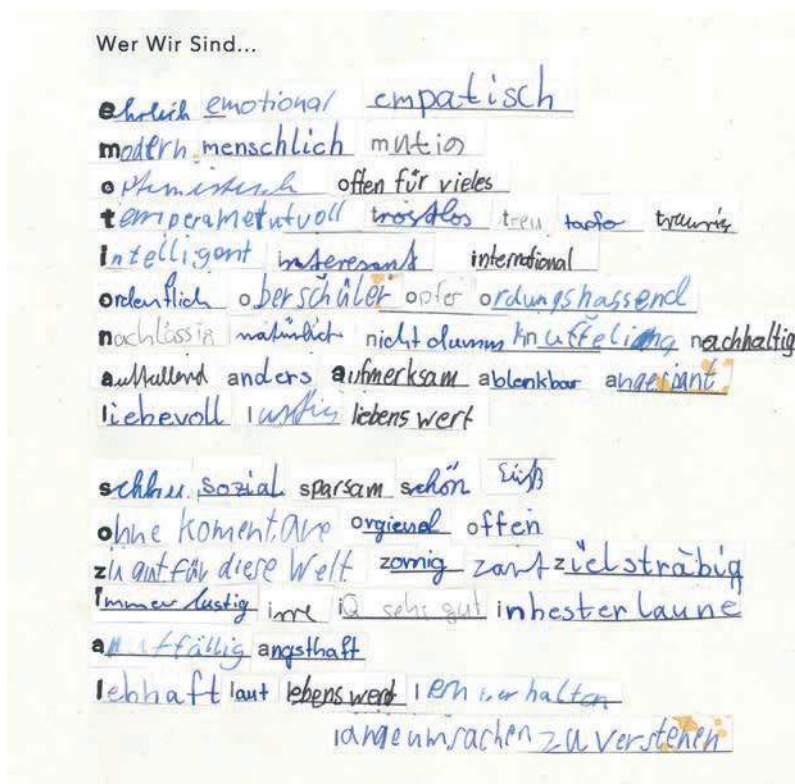 Wer Wir Sind...
ehrlich emotional empatisch
modern menschlich mutig
optimistisch offen für vieles
temperametutvoll trostlos treu tapfer traurig
intelligent interesant international
ordentlich oberschüler opfer ordungshassend
nachlässig natürlich nicht dumm knuffeling nachhaltig
auffallend anders aufmerksam ablenkbar
liebevoll lustig liebenswert
sozial sparsam schön süß
ohne komentare orgienel offen
zu gut für diese Welt zornig zart zielsträbig
Immer lustig irre iQ sehr gut in bester laune
angsthaft
lebhaft laut lebenswert
lange um sachen zu verstehen